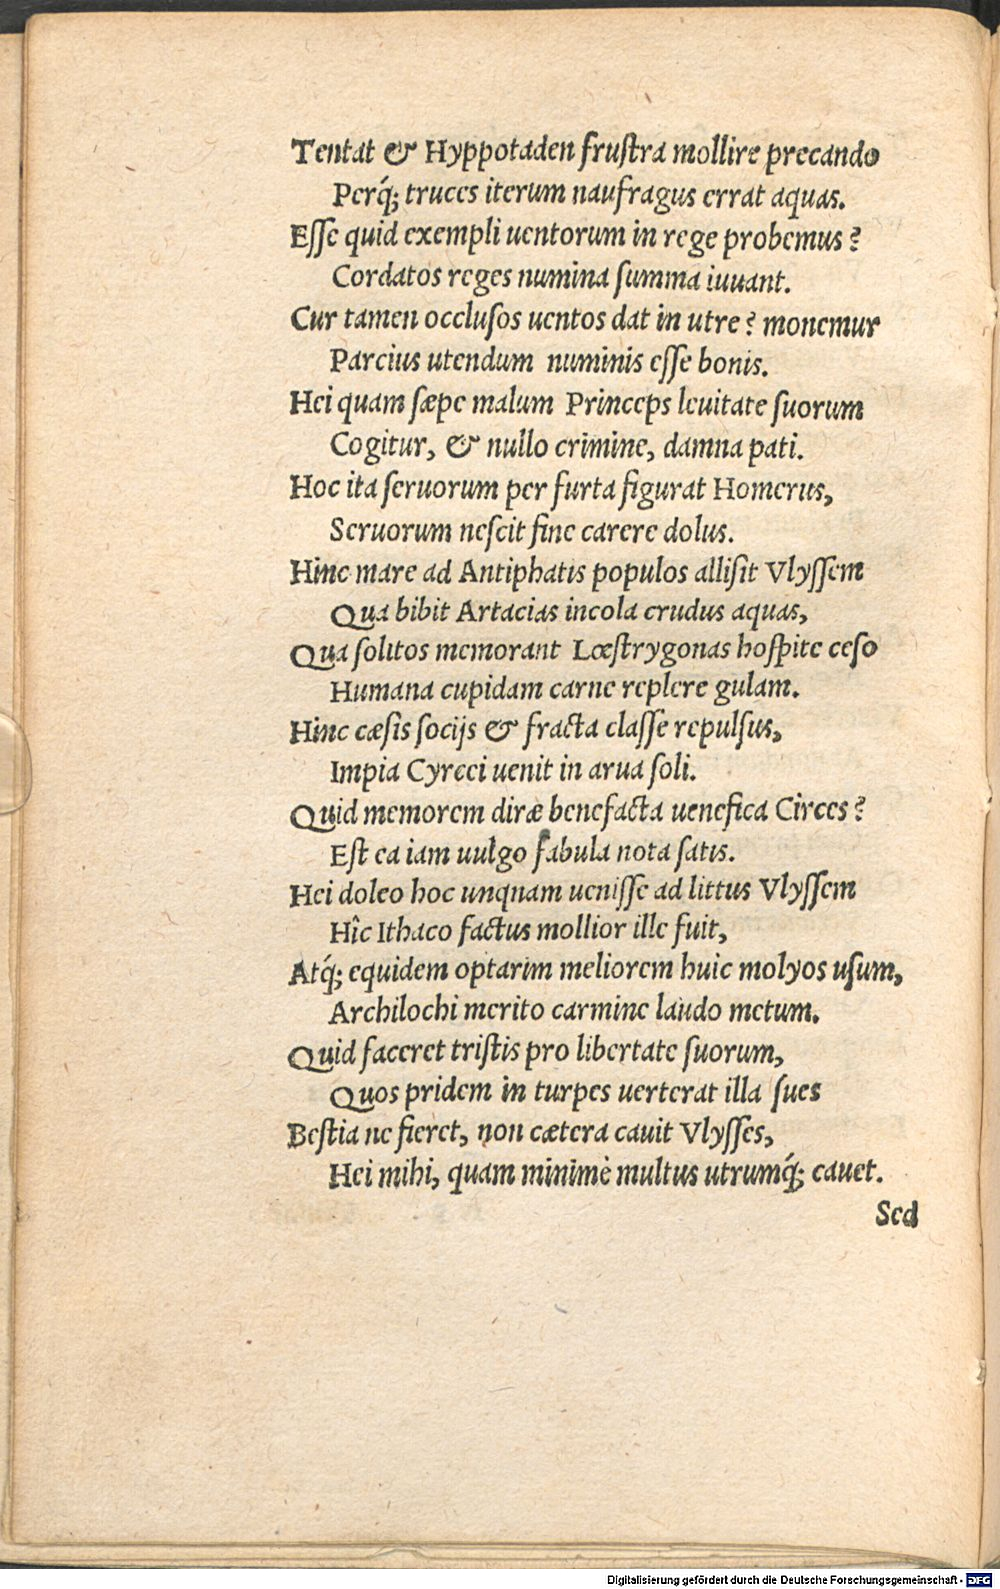 Tentat & Hyppotaden frustra mollire precando
Perq́; truces iterum naufragus errat aquas.
Esse quid exempli uentorum in rege probemus?
Cordatos reges numina summa iuuant.
Cur tamen occlusos uentos dat in utre? monemur
Parcius utendum numinis esse bonis.
Hei quam sæpe malum Princeps leuitate suorum
Cogitur, & nullo crimine, damna pati.
Hoc ita seruorum per furta figurat Homerus,
Seruorum nescit fine carere dolus.
Hinc mare ad Antiphatis populos allisit Vlyssem
Qua bibit Artacias incola crudus aquas,
Qua solitos memorant Lœstrygonas hospite ceso
Humana cupidam carne replere gulam.
Hinc cæsis socijs & fracta classe repulsus,
Impia Cyreci uenit in arua soli.
Quid memorem diræ benefacta uenefica Circes?
Est ea iam uulgo fabula nota satis.
Hei doleo hoc unquam uenisse ad littus Vlyssem
Hîc Ithaco factus mollior ille fuit,
Atq́; equidem optarim meliorem huic molyos usum,
Archilochi merito carmine laudo metum.
Quid faceret tristis pro libertate suorum,
Quos pridem in turpes uerterat illa sues
Bestia ne fieret, non cætera cauit Vlysses,
Hei mihi, quam minimè multus utrumq́; cauet.
Sed
Digitalisierung gefördert durch die Deutsche Forschungsgemeinschaft - DFG